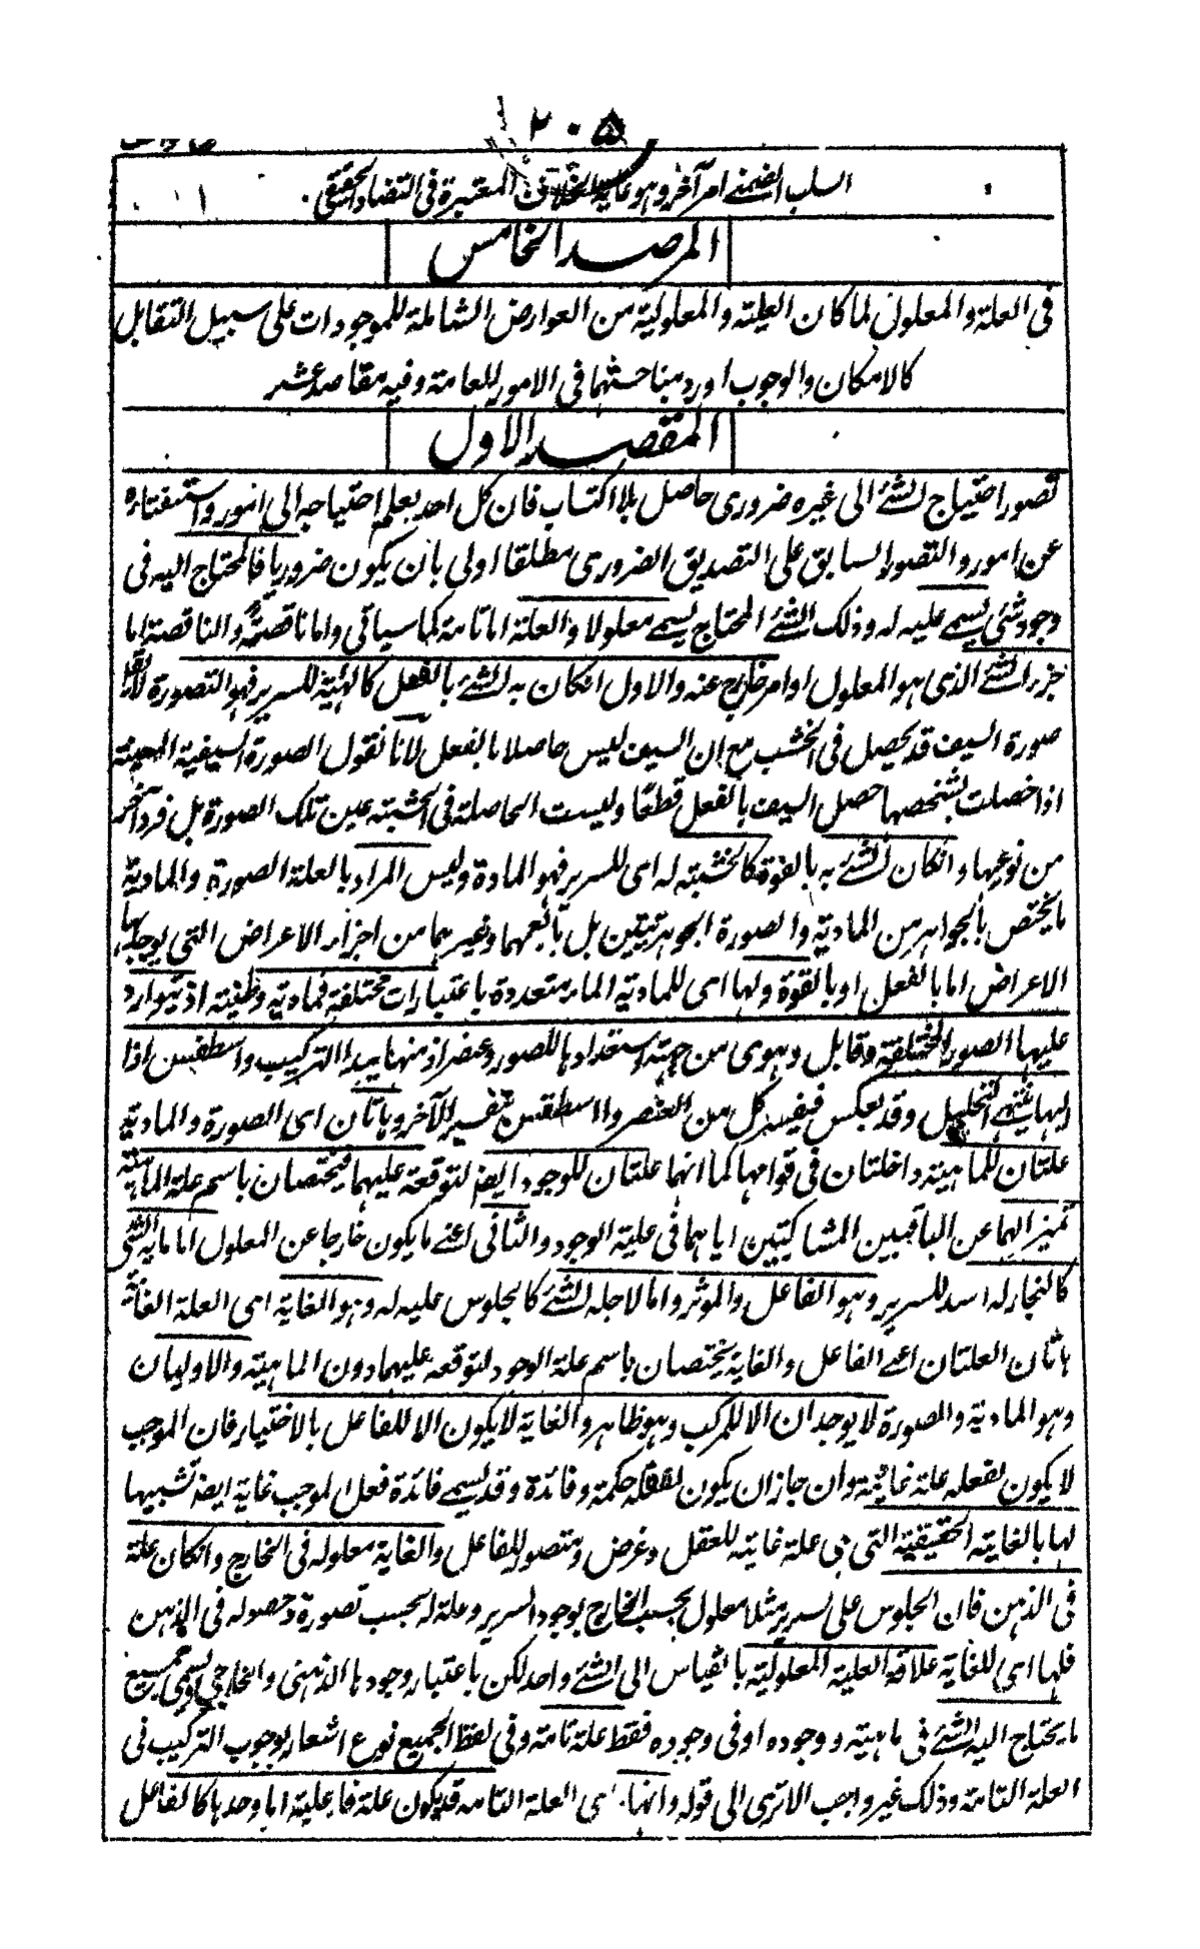 ٢٠٥
السلب الضمني امر آخر وهو غاية الخلاف المعتبرة في التضاد الحقيقي.
المرصد الخامس
في العلة والمعلول لما كان العلية والمعلولية من العوارض الشاملة للموجودات على سبيل التقابل
كالامكان والوجوب اورد مباحثهما في الامور العامة وفيه مقاصد عشر
المقصد الاول
تصور احتياج الشئ الى غيره ضروري حاصل بلا اكتساب فان كل احد يعلم احتياجه الى امور واستغناءه
عن امور والتصور السابق على التصديق الضروري مطلقا اولى بان يكون ضروريا فالمحتاج اليه في
وجود شئ يسمى علية له وذلك الشئ المحتاج يسمى معلولا والعلة اما تامة كما سيأتي واما ناقصة والناقصة اما
جزء الشئ الذي هو المعلول او امر خارج عنه والاول انكان به الشئ بالفعل كالهيئة للسرير فهو الصورة لا يقال
صورة السيف قد تحصل في الخشب مع ان السيف ليس حاصلا بالفعل لانا نقول الصورة السيفية المعينة
اذا حصلت بشخصها حصل السيف بالفعل قطعا وليست الحاصلة في الخشبة عين تلك الصورة بل فرد آخر
من نوعها وانكان الشئ به بالقوة كالخشبة له اى للسرير فهو المادة وليس المراد بالعلة الصورة والمادية
ما يختص بالجواهر من المادية والصورة الجوهريتين بل ما يعمهما وغيرهما من اجزاء الاعراض التي يوجد بها
الاعراض اما بالفعل او بالقوة ولها اى للمادية اسماء متعددة باعتبارات مختلفة فمادية وطينة اذ تتوارد
عليها الصور المختلفة وقابل وهيولى من جهة استعدادها للصور وعنصر اذ منها يبدا التركيب واسطقس اذا
اليها ينتهي التحليل وقد يعكس فيفسر كل من العنصر والاسطقس بتفسير الآخر وهاتان اى الصورة والمادية
علتان للماهية داخلتان في قوامها كما انهما علتان للوجود ايضا لتوقفه عليهما فيختصان باسم علة الماهية
تميزا لهما عن الباقيين المشاركتين اياهما في علية الوجود والثاني اعنى ما يكون خارجا عن المعلول اما ما به الشئ
كالنجار له اى للسرير وهو الفاعل والموثر واما لاجله الشئ كالجلوس عليه له وهو الغاية اى العلة الغائية
هاتان العلتان اعنى الفاعل والغاية يختصان باسم علة الوجود لتوقفه عليهما دون الماهية والاوليان
وهو المادية والصورة لا يوجدان الا للمركب وهو ظاهر والغاية لا يكون الا للفاعل بالاختيار فان الموجب
لا يكون لفعله علة غائية وان جاز ان يكون لفعله حكمة وفائدة وقد يسمى فائدة فعل الموجب غاية ايضا تشبيها
لها بالغاية الحقيقية التي هي علة غائية للعقل وغرض ومتصور للفاعل والغاية معلوله في الخارج وانكان علة
في الذهن فان الجلوس على السرير مثلا معلول بحسب الخارج بوجود السرير وعلة له بحسب تصوره وحصوله في الذهن
فلها اى للغاية علاقة العلية المعلولية بالقياس الى الشئ واحد لكن باعتبار وجودها الذهني والخارجي ويسمى جميع
ما يحتاج اليه الشئ في ماهيته ووجوده او في وجوده فقط علة تامة وفي لفظ الجميع نوع اشعار بوجوب التركيب في
العلة التامة وذلك غير واجب الا ترى الى قوله وانها اى العلة التامه قد يكون علة فاعلية اما وحدها كالفاعل